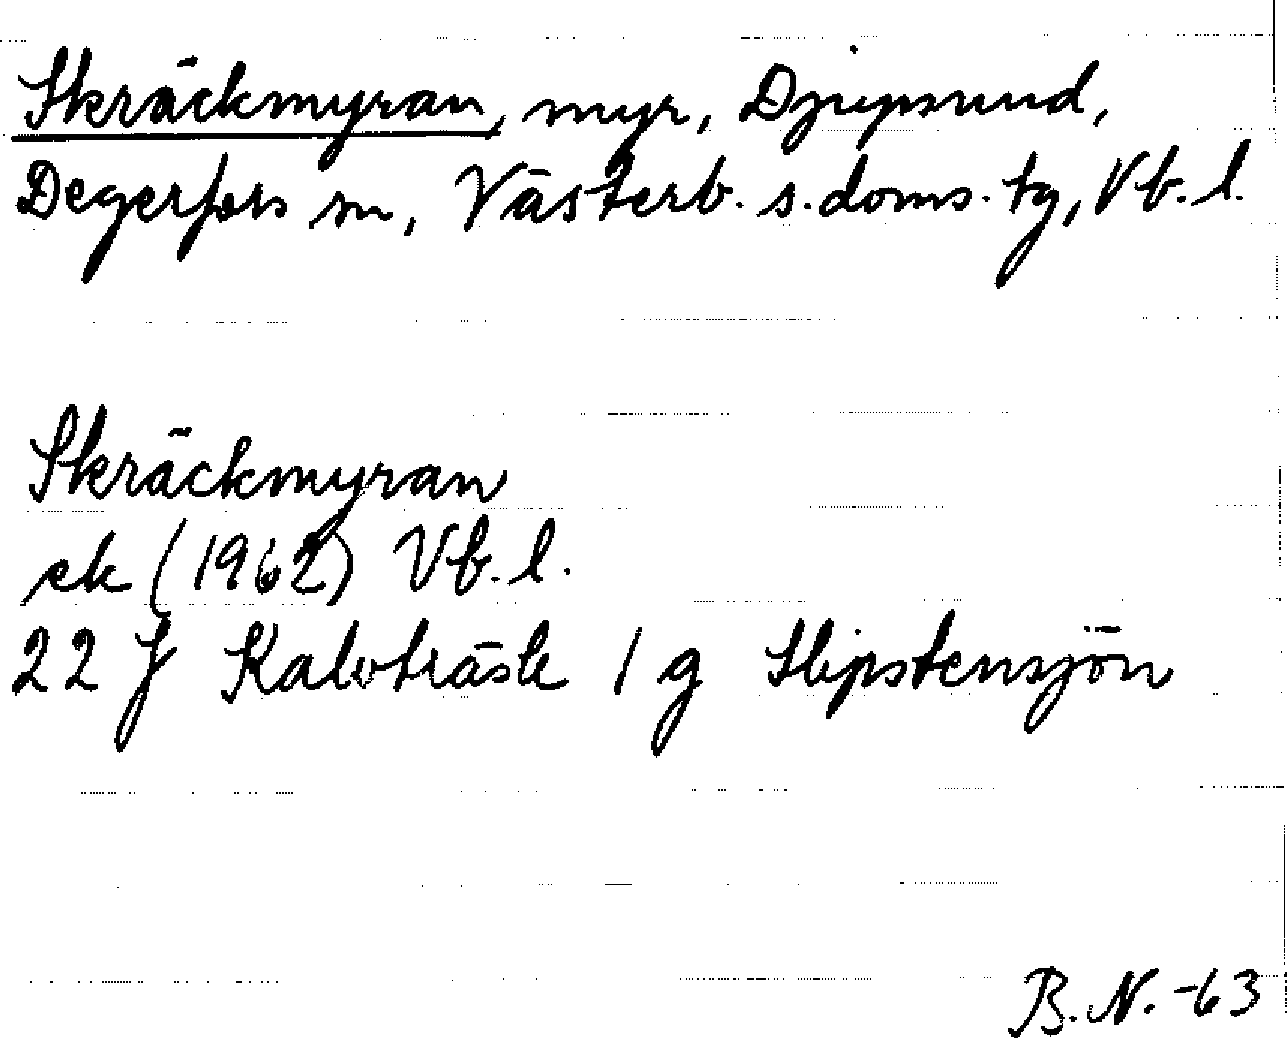 Skräckmyran, myr, Djupsund,
Degerfors sn, Västerb. s. doms. tg, Vb. l.
Skräckmyran
ek (1962) Vb. l.
22 J Kalvträsk 1 g Slipstensjön
B. N. -63